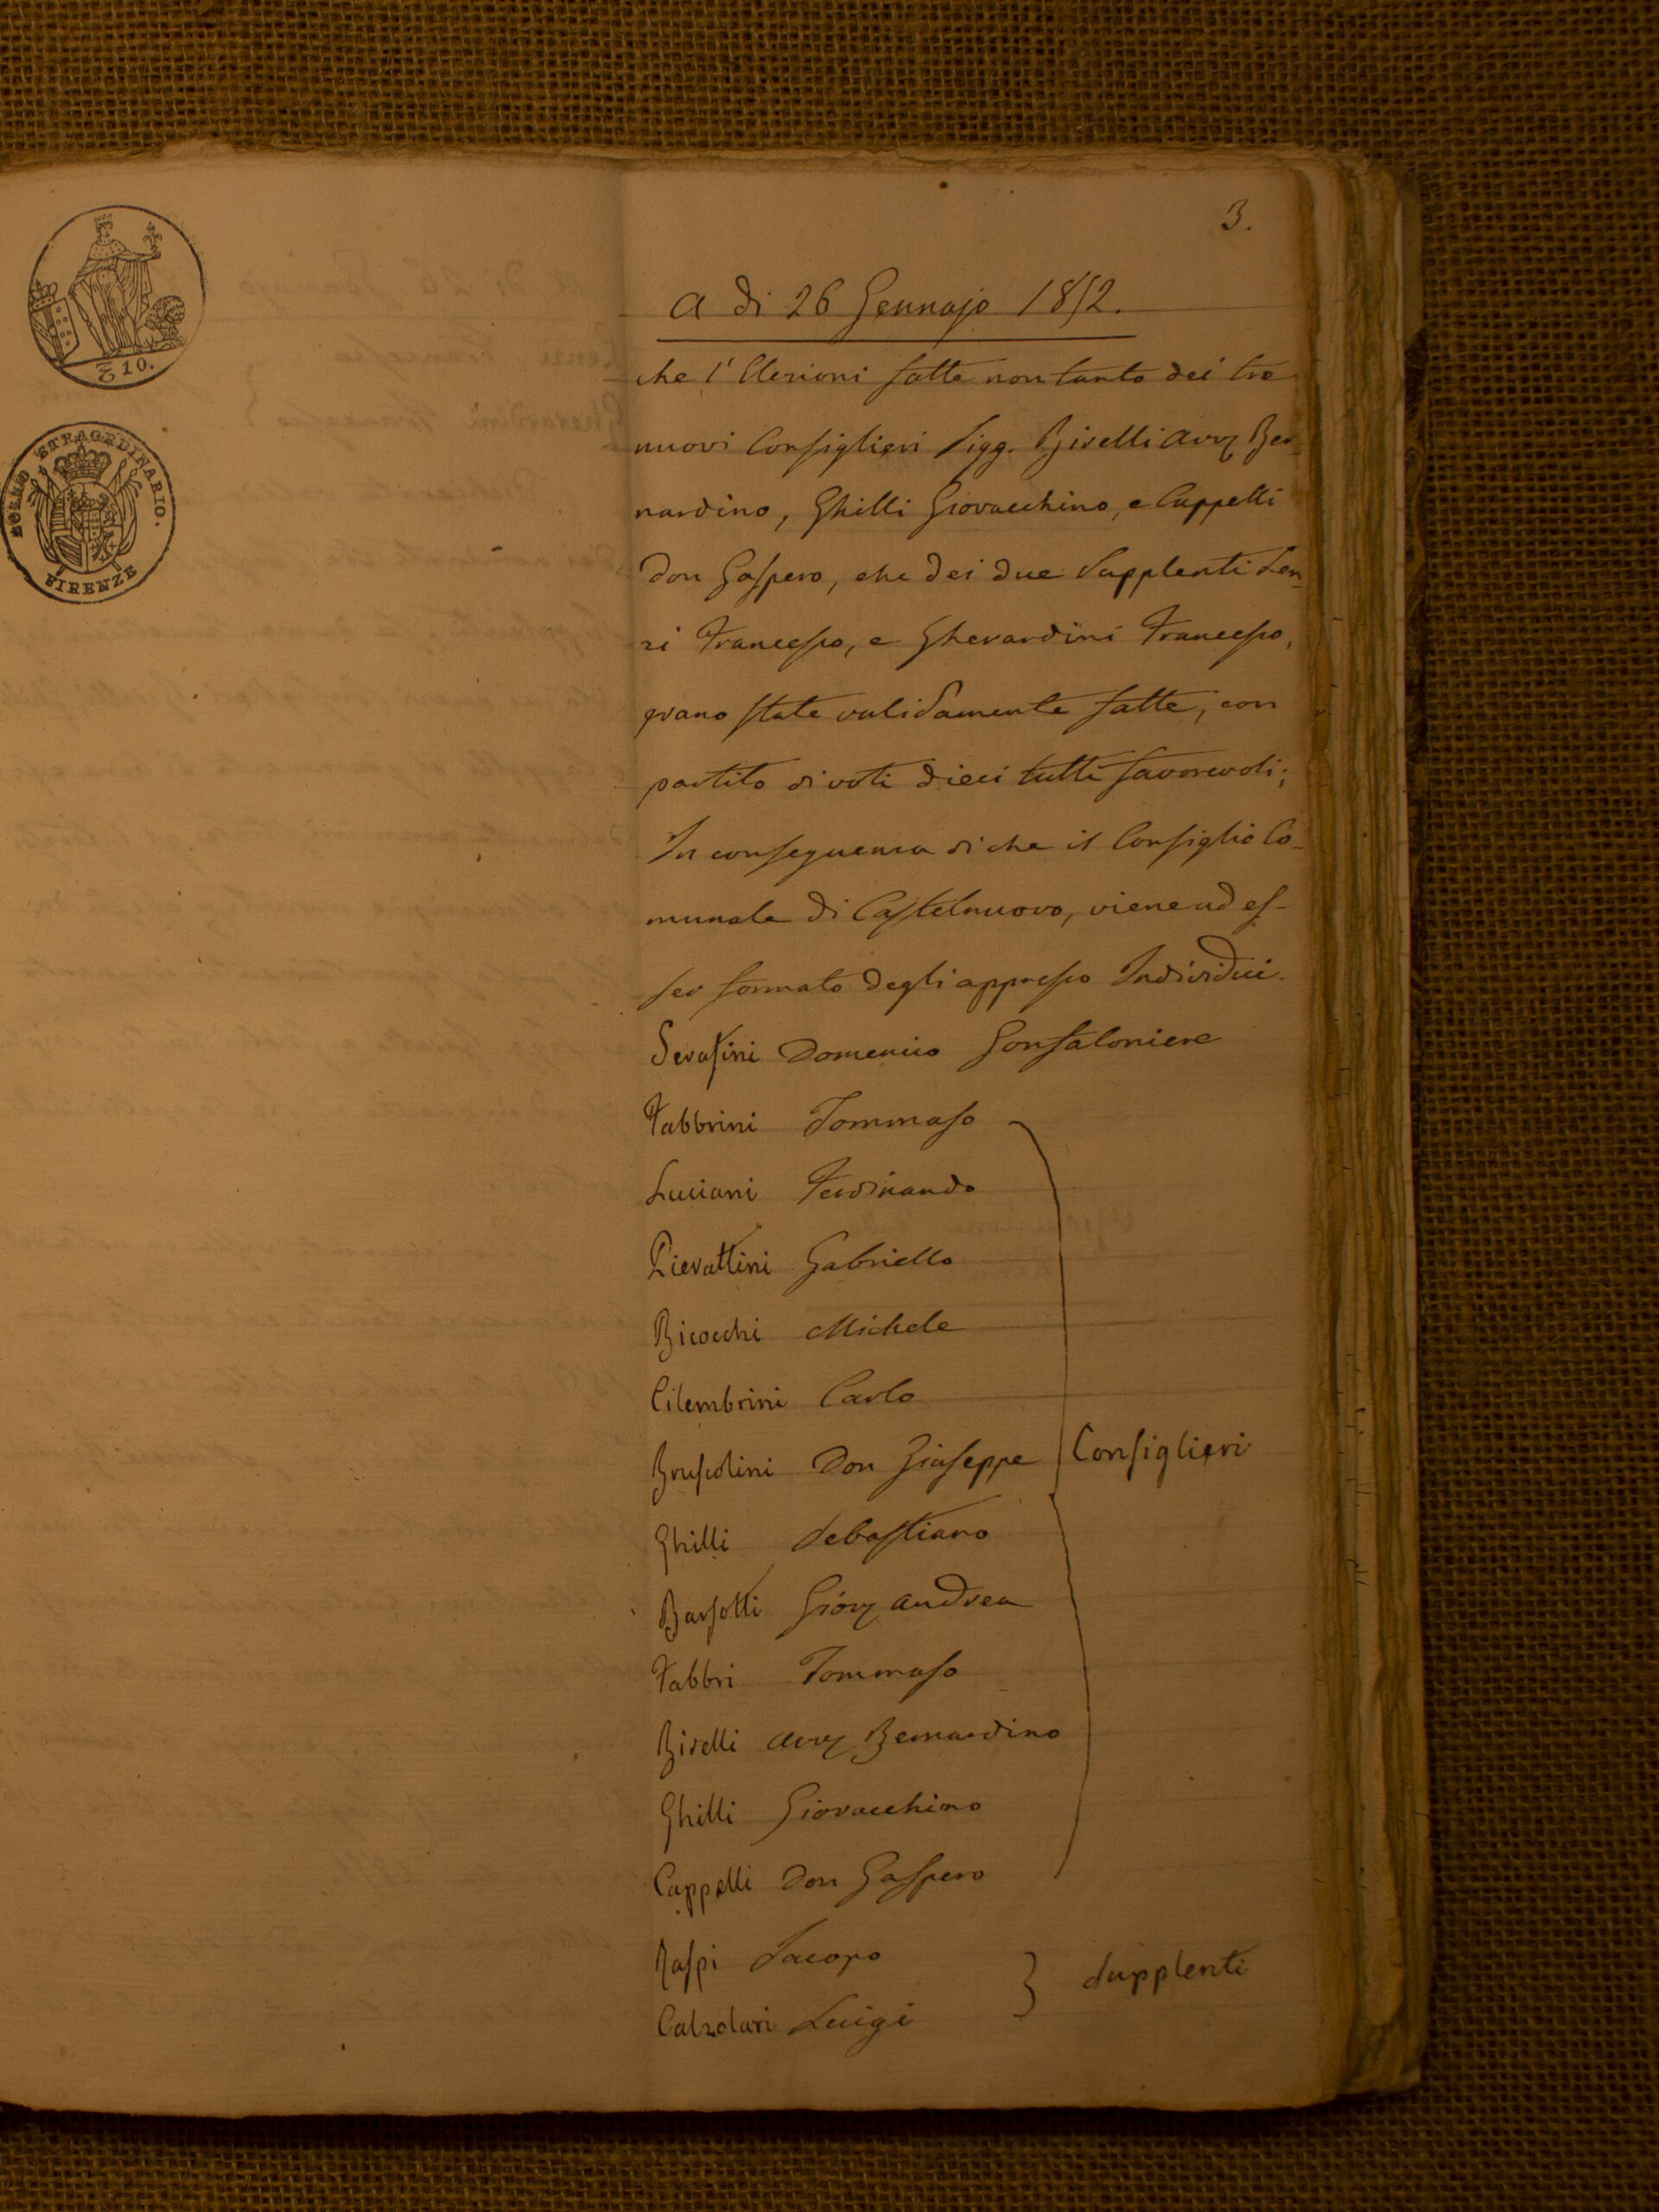 3.
A di 26 Gennajo 1852.
che l'Elezioni fatte non tanto dei tre
nuovi Consiglieri Sigg. Birelli Avv. Ber-
nardino, Ghilli Giovacchino, e Cappelli
Don Gaspero, che dei due Supplenti Ren
zi Francesco, e Gherardini Francesco,
erano state validamente fatte, con
partito di voti dieci tutti favorevoli;
In conseguenza di che il Consiglio Co-
munale di Castelnuovo, viene ad es-
ser formato degli appresso Individui.
Serafini Domenico Gonfaloniere
Fabbrini Tommaso
Luciani Ferdinando
Pierattini Gabriello
Bicocchi Michele
Cilembrini Carlo
Bruscolini Don Giuseppe Consiglieri
Ghilli Sebastiano
Barsotti Giov. Andrea
Fabbri Tommaso
Birelli Avv. Bernardino
Ghilli Giovacchino
Cappelli Don Gaspero
Raspi Jacopo
Supplenti
Calzolari Luigi
10.
BOLLO STRAORDINARIO.
FIRENZE